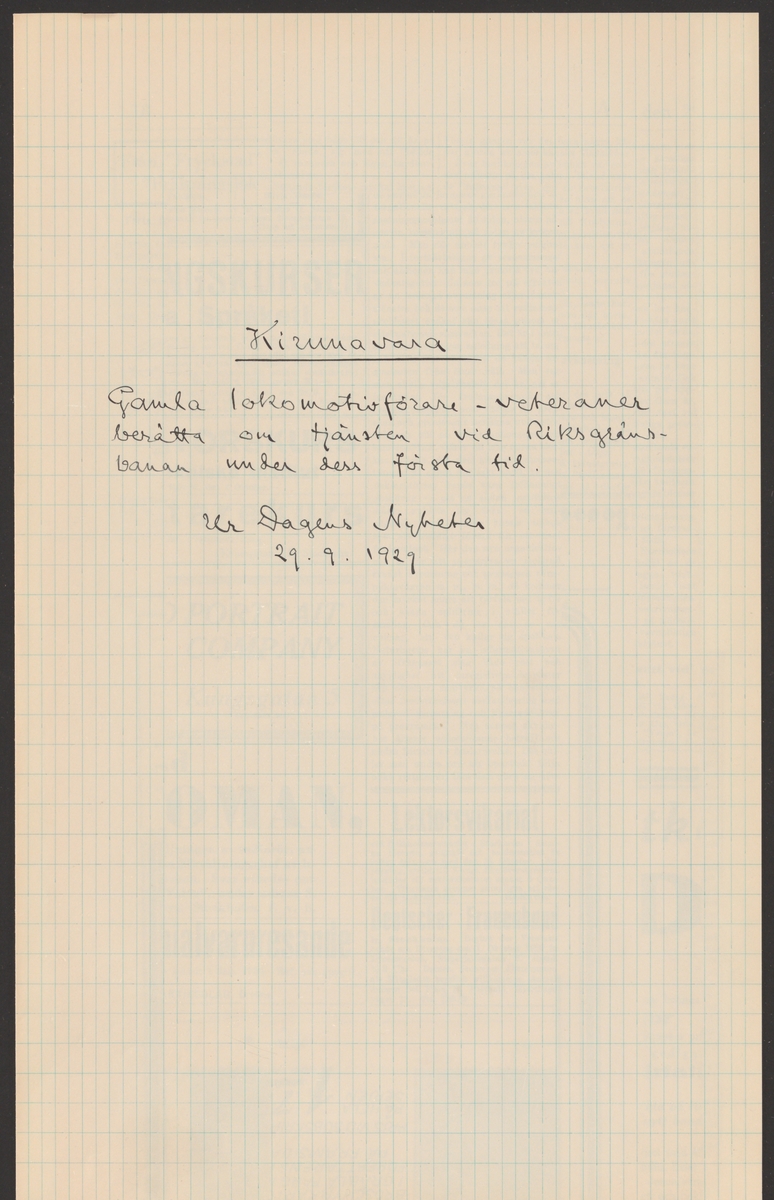 Kirunavara
Gamla lokomotivförare - veteraner
berätta om tjänsten vid Riksgräns-
banan under dess första tid.
Ur Dagens Nyheter
29. 9. 1929